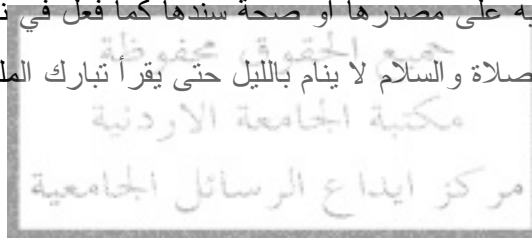 به على مصدرها أو صحة سندها كما فعل في
جميع الحقوق محفوظة
صلاة والسلام لا ينام بالليل حتى يقرأ تبارك
مكتبة الجامعة الاردنية
مركز ايداع الرسائل الجامعية